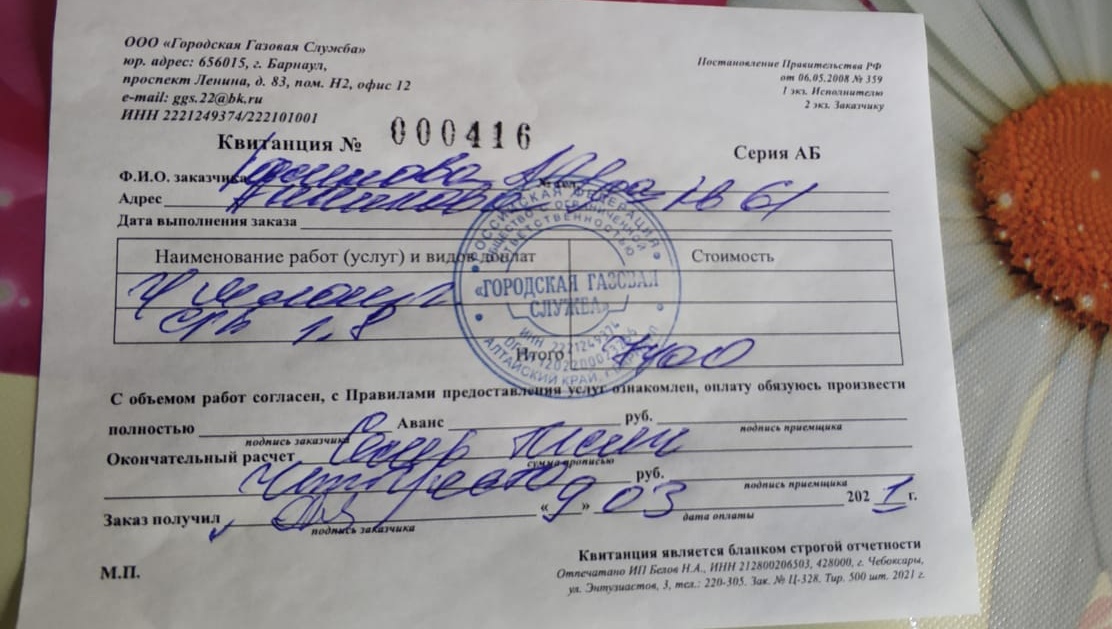 ООО «Городская Газовая Служба»
юр. адрес: 656015, г. Барнаул,
проспект Ленина, д. 83, пом. Н2, офис 12
e-mail: ggs.22@bk.ru
ИНН 2221249374/222101001
Постановление Правительства РФ
от 06.05.2008 № 359
1 экз. Исполнителю
2 экз. Заказчику
Квитанция № 000416
Серия АБ
Ф.И.О. заказчика
Адрес 61
Дата выполнения заказа
Наименование работ (услуг) и видов доплат Стоимость
1,8
Итого 7400
РОССИЙСКАЯ ФЕДЕРАЦИЯ
ОБЩЕСТВО С ОГРАНИЧЕННОЙ
ОТВЕТСТВЕННОСТЬЮ
«ГОРОДСКАЯ ГАЗОВАЯ
СЛУЖБА»
ИНН 2221249374
АЛТАЙСКИЙ КРАЙ, г.
С объемом работ согласен, с Правилами предоставления услуг ознакомлен, оплату обязуюсь произвести
полностью Аванс руб.
подпись заказчика подпись приемщика
Окончательный расчет Семь тысяч
сумма прописью
четыреста руб.
подпись приемщика
Заказ получил «9» 03 2021 г.
подпись заказчика дата оплаты
М.П.
Квитанция является бланком строгой отчетности
Отпечатано ИП Белов Н.А., ИНН 212800206503, 428000, г. Чебоксары,
ул. Энтузиастов, 3, тел.: 220-305. Зак. № Ц-328. Тир. 500 шт. 2021 г.